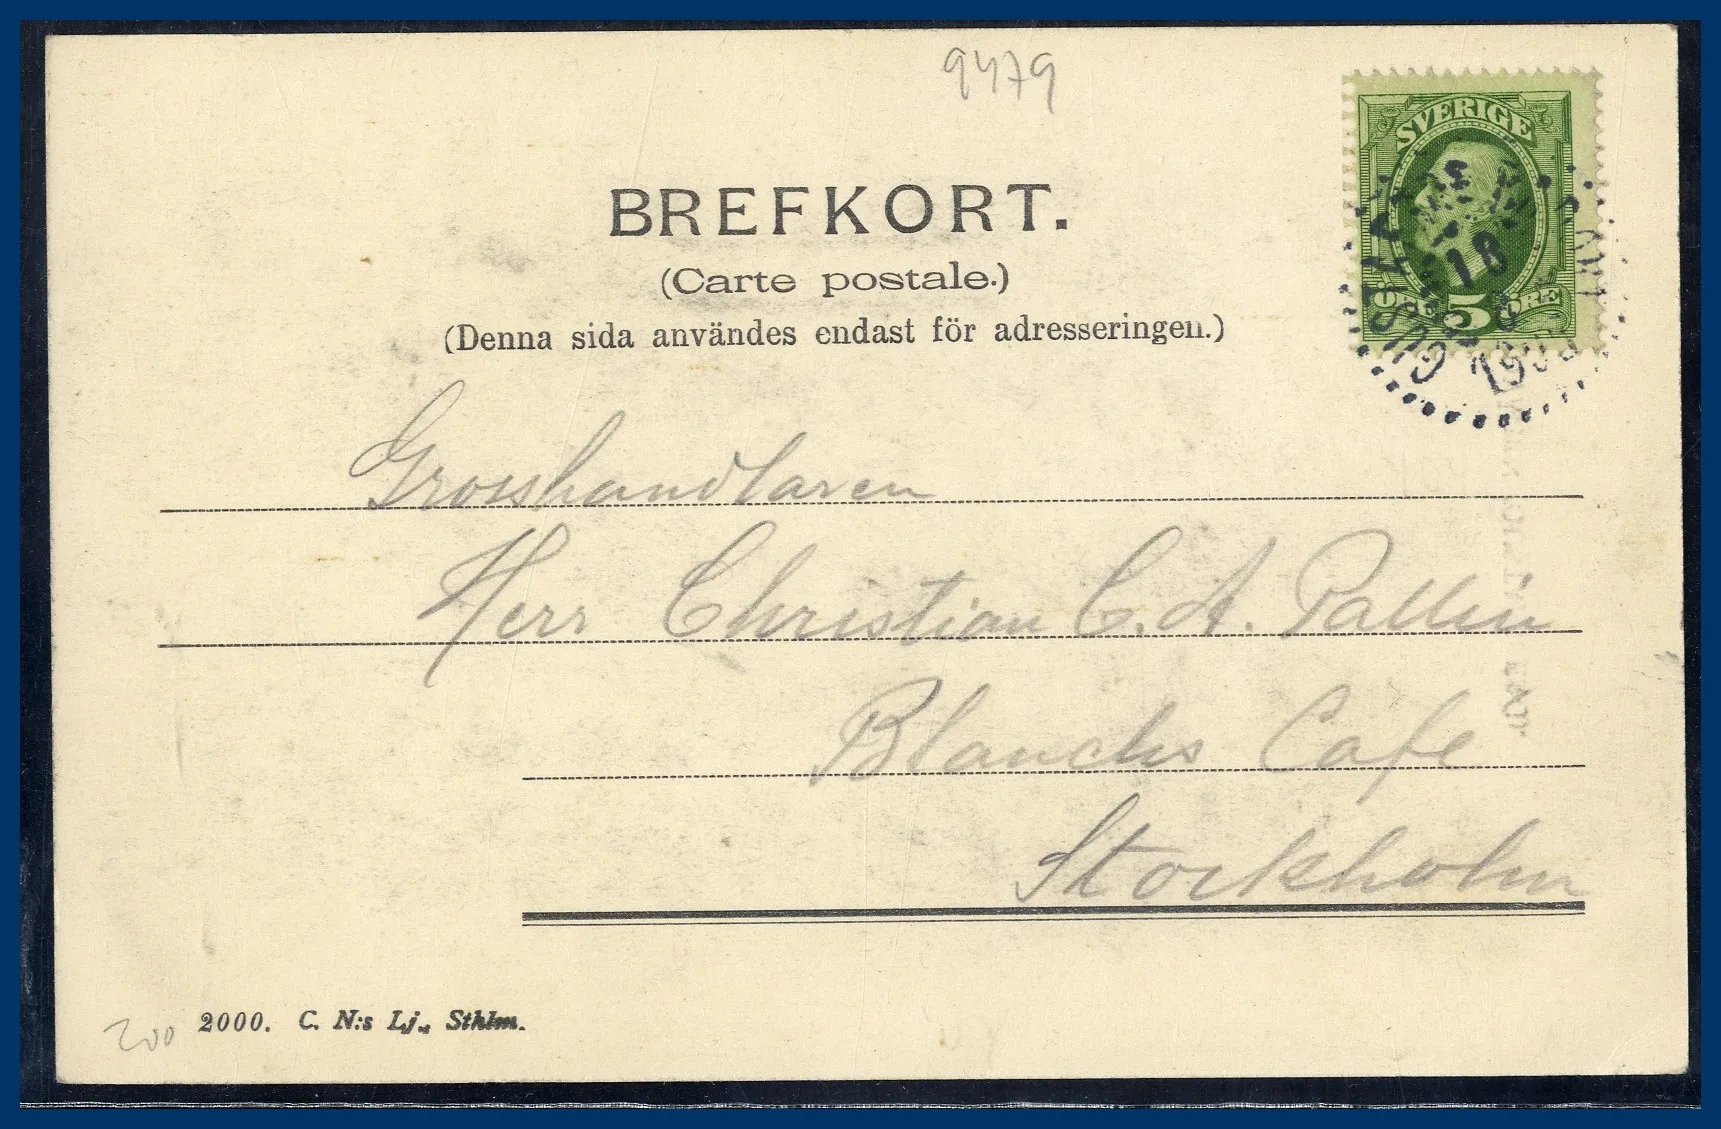 9479
SVERIGE
ÖRE 5 ÖRE
BREFKORT.
(Carte postale.)
(Denna sida användes endast för adresseringen.)
Grosshandlaren
Herr Christian C. A. Pallin
Blanchs Café
Stockholm
200
2000. C. N:s Lj., Sthlm.